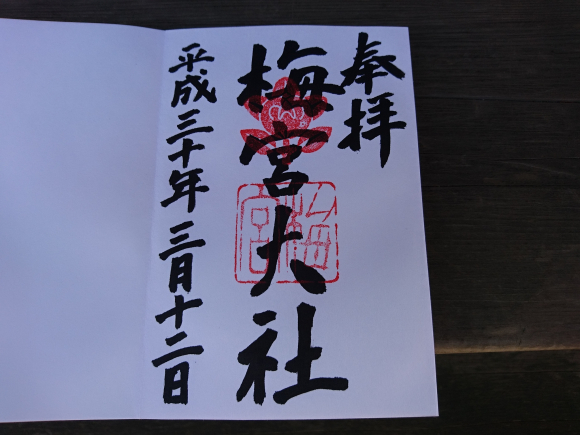 奉拝
梅宮大社
平成三十年三月十二日